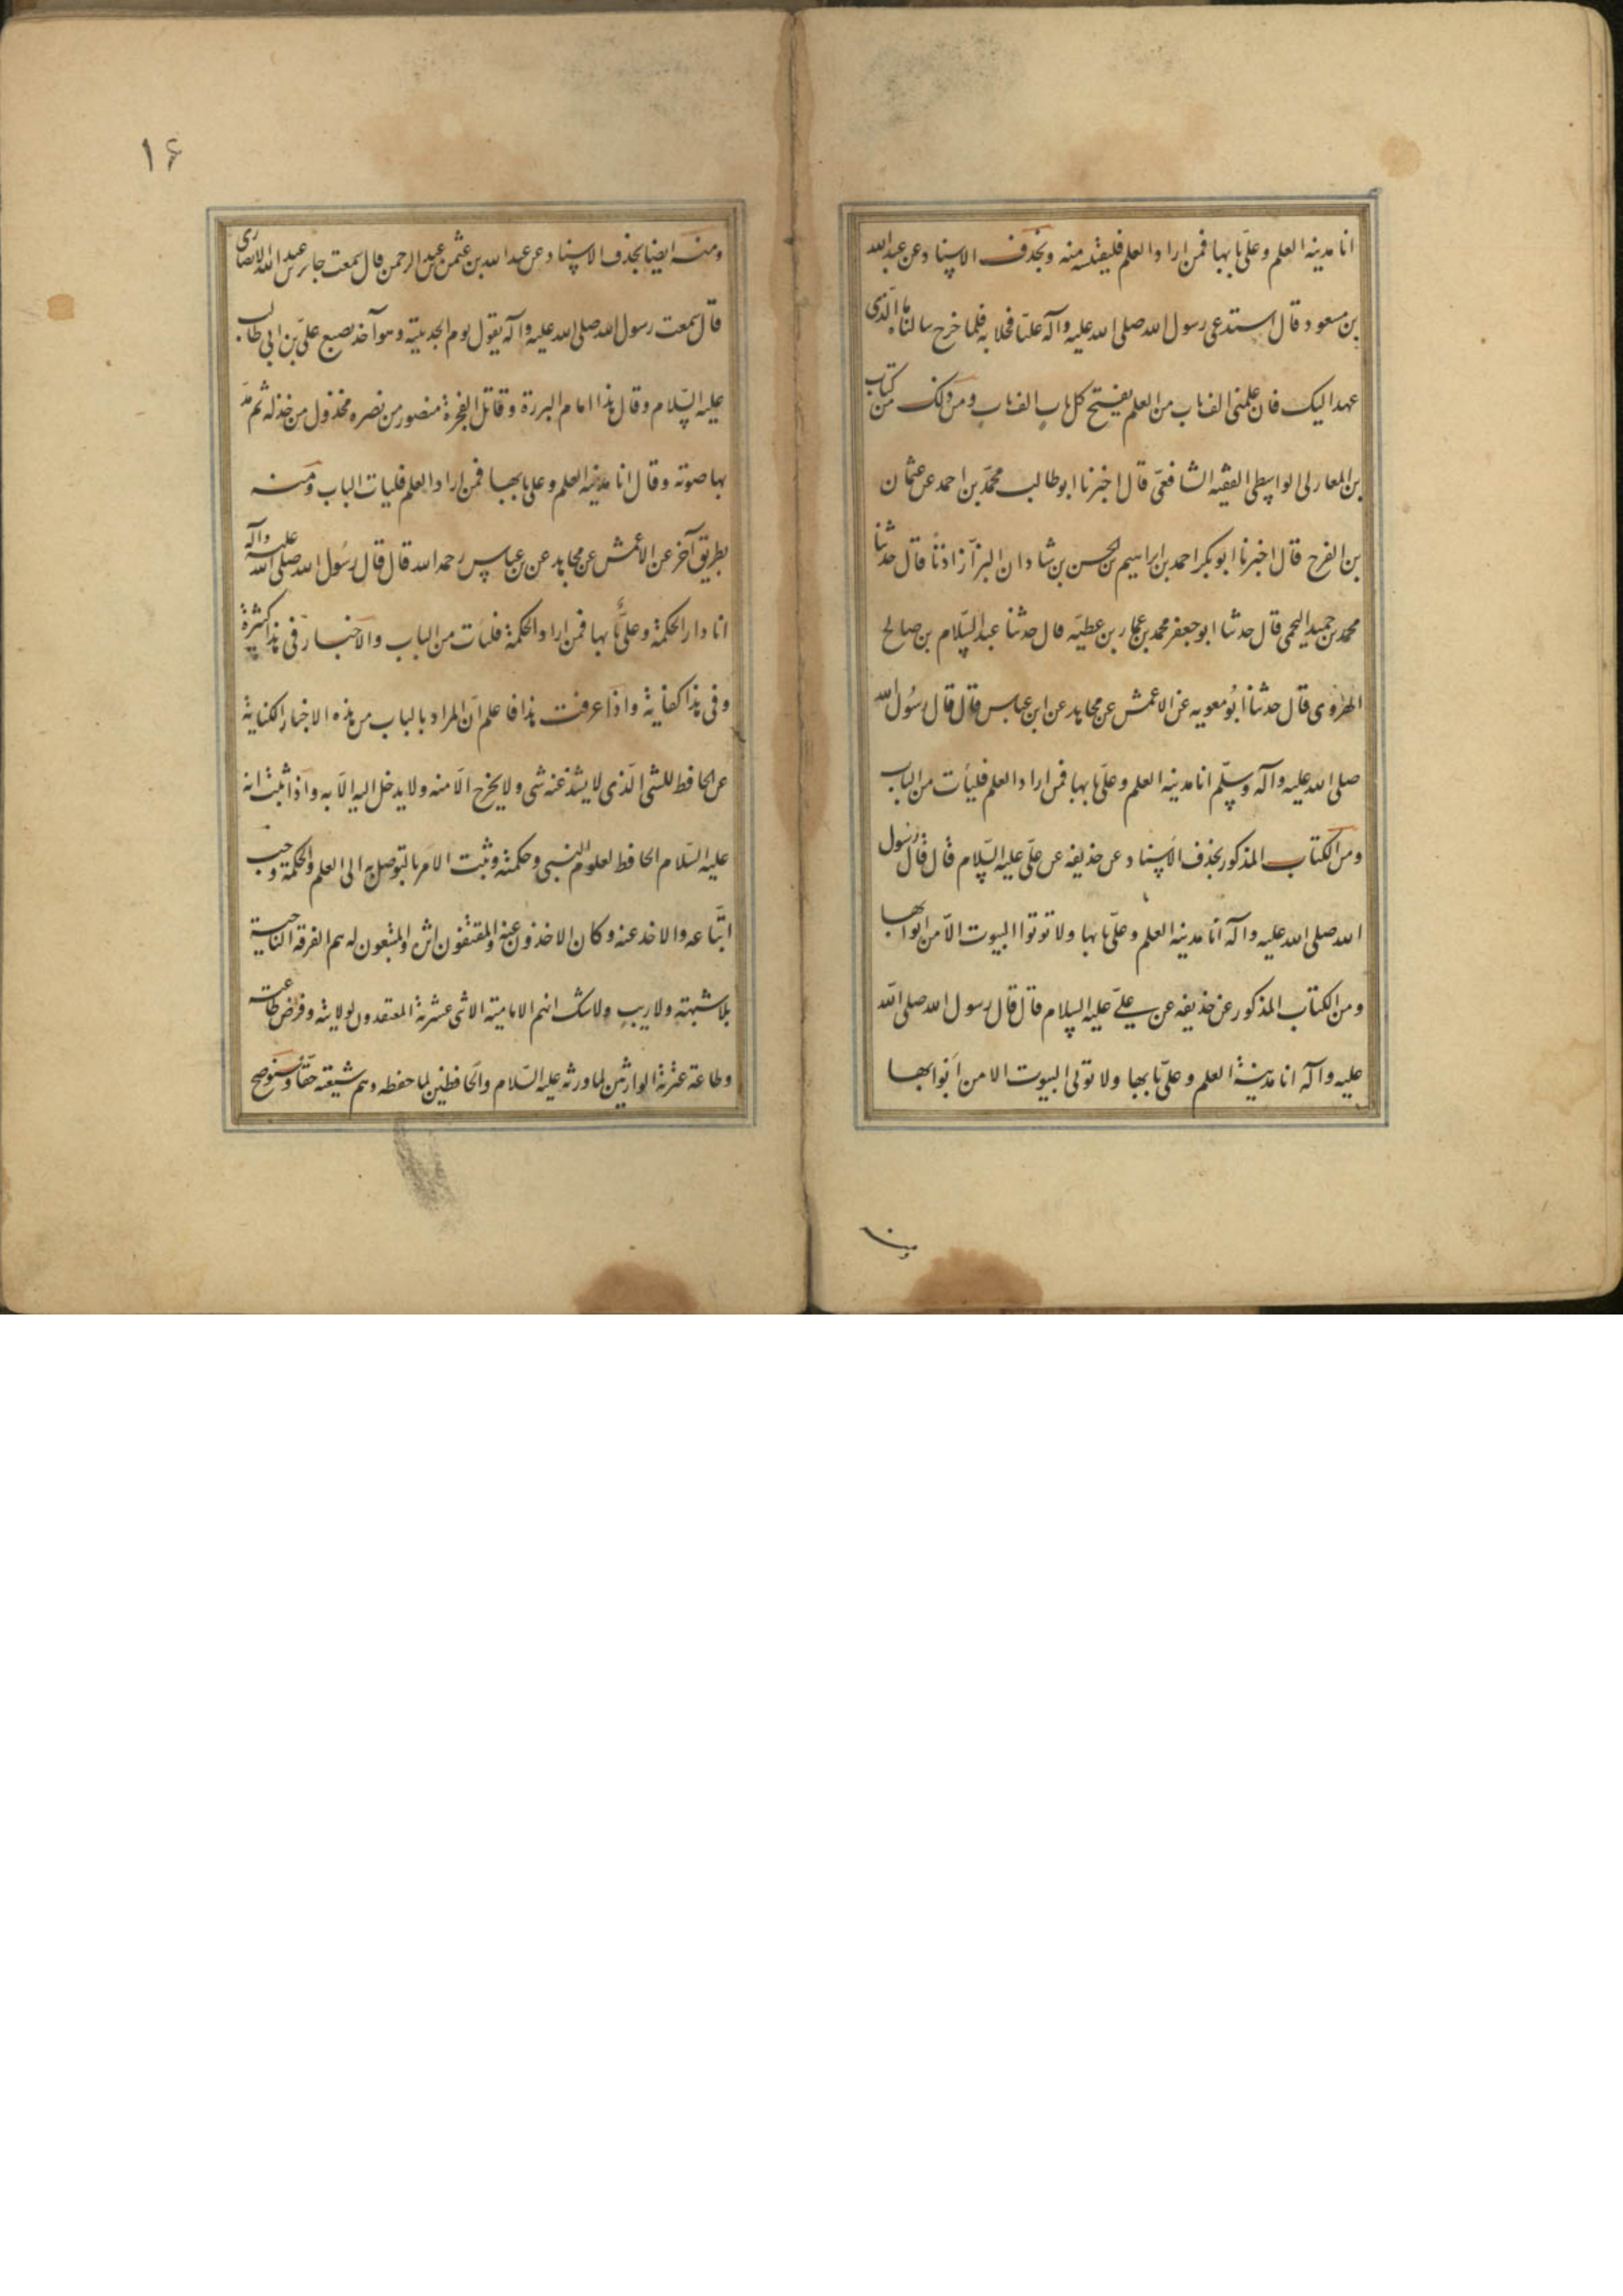 انا مدينه العلم وعلىّ بابها فمن اراد العلم فليقتبسه منه وبحذف الاسناد وعن عبدالله
بن مسعود قال استدعى رسول الله صلى الله عليه وآله عليّا فخلا به فلما خرج سالناه ما الّذى
عهد اليك فان علمنى الف باب من العلم يفتح كل باب الف باب ومن ذلك من كتاب
بن المغازلى الواسطى الفقيه الشافعىّ قال اخبرنا ابو طالب محمّد بن احمد عن عثمان
بن الفرج قال اخبرنا ابو بكر احمد بن ابراهيم بن الحسن بن شادان البزّاز اذنًا قال حدثنا
محمد بن حميد اللخمى قال حدثنا ابو جعفر محمد بن عمار بن عطيّه قال حدثنا عبد السّلام بن صالح
الهروى قال حدثنا ابُو معويه عن الاعمش عن مجاهد عن ابن عباس قال قال رسُول الله
صلى الله عليه وآله وسلّم انا مدينه العلم وعلىّ بابها فمن اراد العلم فليأت من الباب
ومن الكتاب المذكور بحذف الاسناد عن حذيفه عن علىّ عليه السّلام قال قال رسول
الله صلى الله عليه وآله انا مدينه العلم وعلىّ بابها ولا توتوا البيوت الّا من ابوابها
ومن الكتاب المذكور عن حذيفه عن علىّ عليه السلام قال قال رسول الله صلى الله
عليه وآله انا مدينة العلم وعلىّ بابها ولا توتى البيوت الا من ابوابها
ومنه
١۶
ومنه ايضا بحذف الاسناد عن عبد الله بن عثمن عن عبد الرحمن قال سمعت جابر بن عبد الله الانصارى
قال سمعت رسول الله صلى الله عليه وآله يقول يوم الحديبيّة وهو آخذ بضبع علىّ بن ابى طالب
عليه السّلام وقال هذا امام البررة وقاتل الفجرة منصور من نصره مخذول من خذله ثم مدّ
بها صوته وقال انا مدينه العلم وعلى بابها فمن اراد العلم فليات الباب ومنه
بطريق آخر عن الاعمش عن مجاهد عن بن عباس رحمه الله قال قال رسُول الله صلى الله عليه وآله
انا دار الحكمة وعلىّ بابها فمن اراد الحكمة فليأت من الباب والاخبار فى هذا كثيرة
وفى هذا كفاية واذا عرفت هذا فاعلم انّ المراد بالباب من هذه الاخبار الكناية
عن الحافظ للشى الّذى لا يشذ عنه شى ولا يخرج الّا منه ولا يدخل اليه الّا به واذا ثبت انه
عليه السّلام الحافظ لعلوم النبى وحكمته وثبت الامر بالتوصل به الى العلم والحكمة وجب
اتّباعه والاخذ عنه وكان الاخذون عنه والمقتفون اثره والمتبعون له هم الفرقه الناجية
بلا شبهة ولا ريب ولا شك انهم الاماميّة الاثنى عشرية المعتقدون لولايته وفرض طاعته
وطاعة عترته الوارثين لما ورثه عليه السّلام والحافظين لما حفظه وهم شيعته حقّا وسنوضح